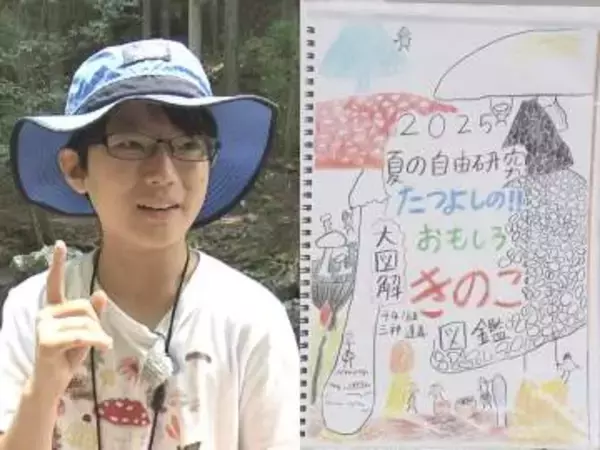 2025
夏の自由研究
たつよしの!!
おもしろ
大図解
きのこ
図鑑